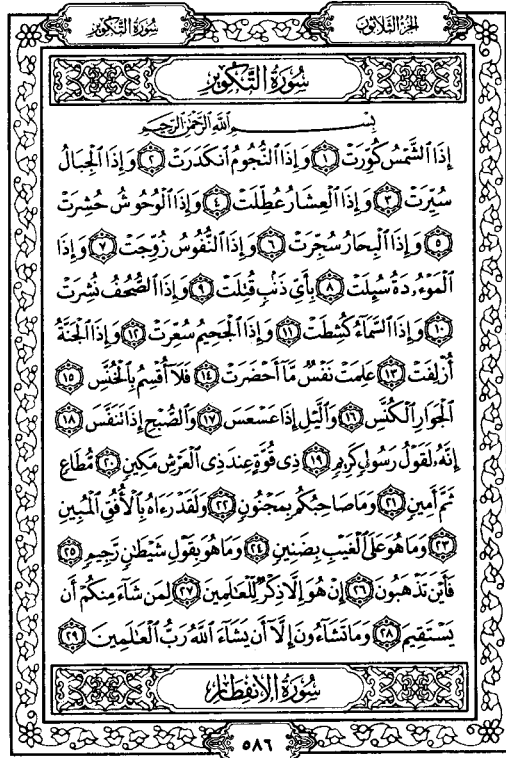 سورة التكوير
الجزء الثلاثون
سُورَةُ التَّكْوِيرِ
بِسْمِ اللَّهِ الرَّحْمَٰنِ الرَّحِيمِ
إِذَا الشَّمْسُ كُوِّرَتْ ١ وَإِذَا النُّجُومُ انكَدَرَتْ ٢ وَإِذَا الْجِبَالُ
سُيِّرَتْ ٣ وَإِذَا الْعِشَارُ عُطِّلَتْ ٤ وَإِذَا الْوُحُوشُ حُشِرَتْ
٥ وَإِذَا الْبِحَارُ سُجِّرَتْ ٦ وَإِذَا النُّفُوسُ زُوِّجَتْ ٧ وَإِذَا
الْمَوْءُۥدَةُ سُئِلَتْ ٨ بِأَيِّ ذَنۢبٍ قُتِلَتْ ٩ وَإِذَا الصُّحُفُ نُشِرَتْ
١٠ وَإِذَا السَّمَاءُ كُشِطَتْ ١١ وَإِذَا الْجَحِيمُ سُعِّرَتْ ١٢ وَإِذَا الْجَنَّةُ
أُزْلِفَتْ ١٣ عَلِمَتْ نَفْسٌ مَّا أَحْضَرَتْ ١٤ فَلَا أُقْسِمُ بِالْخُنَّسِ ١٥
الْجَوَارِ الْكُنَّسِ ١٦ وَالَّيْلِ إِذَا عَسْعَسَ ١٧ وَالصُّبْحِ إِذَا تَنَفَّسَ ١٨
إِنَّهُۥ لَقَوْلُ رَسُولٍ كَرِيمٍ ١٩ ذِي قُوَّةٍ عِندَ ذِي الْعَرْشِ مَكِينٍ ٢٠ مُّطَاعٍ
ثَمَّ أَمِينٍ ٢١ وَمَا صَاحِبُكُم بِمَجْنُونٍ ٢٢ وَلَقَدْ رَءَاهُ بِالْأُفُقِ الْمُبِينِ
٢٣ وَمَا هُوَ عَلَى الْغَيْبِ بِضَنِينٍ ٢٤ وَمَا هُوَ بِقَوْلِ شَيْطَٰنٍ رَّجِيمٍ ٢٥
فَأَيْنَ تَذْهَبُونَ ٢٦ إِنْ هُوَ إِلَّا ذِكْرٌ لِّلْعَٰلَمِينَ ٢٧ لِمَن شَاءَ مِنكُمْ أَن
يَسْتَقِيمَ ٢٨ وَمَا تَشَاءُونَ إِلَّا أَن يَشَاءَ اللَّهُ رَبُّ الْعَٰلَمِينَ ٢٩
سُورَةُ الِانفِطَارِ
٥٨٦